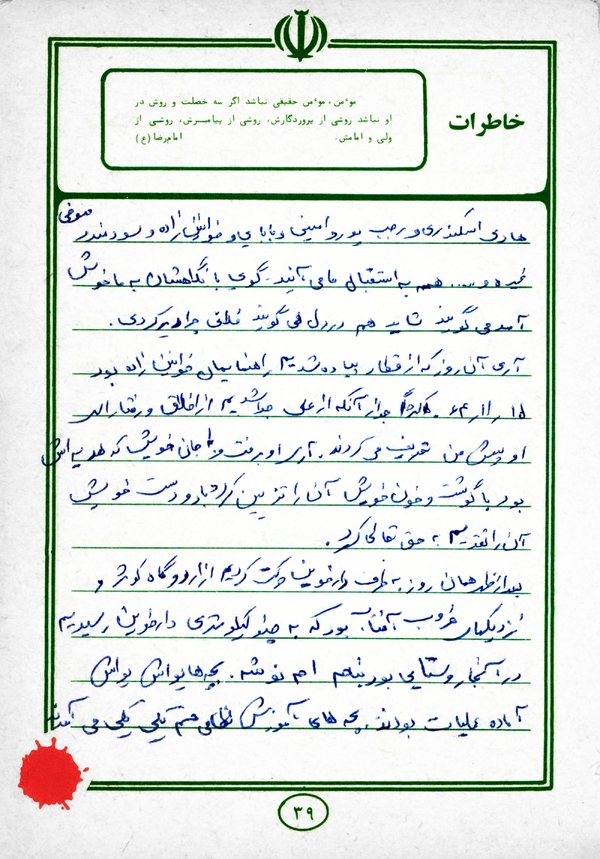 خاطرات
موءمن، موءمن حقیقی نباشد اگر سه خصلت و روش در
او نباشد روشی از پروردگارش، روشی از پیامبرش، روشی از
ولی و امامش. امام‌رضا (ع)
هادی اسکندری و رجب پور و امینی و بابایی و خوانین زاده و سودمندر
غیره و .... همه به استقبال ما می آیند. گویی با نگاهشان به ما خوش
آمد می گویند شاید هم در دل می گویند فلانی چرا دیر کردی.
آری آن روز که از قطار پیاده شدیم راهنمایمان خوانین زاده بود
از آنکه از علی جدا شدیم از اخلاق و رفتار
او پیش من تعریف می کردند. آری او برفت و جانی خویش که هدیه اش
بود با گوشت و خون خویش آن را تزیین کرد با دو دست خویش
آن را تقدیم به حق تعالی کرد.
بعد از ظهر همان روز به طرف دارخوین حرکت کردیم از اردوگاه کوثر و
نزدیکهای غروب آفتاب بود که به چند کیلومتری دارخوین رسیدیم
در آنجا روستایی بود بنام ام نوشه. بچه ها یواش یواش
آماده عملیات بودند. بچه های آموزش نظامی هم تکی تکی می آمدند
۳۹